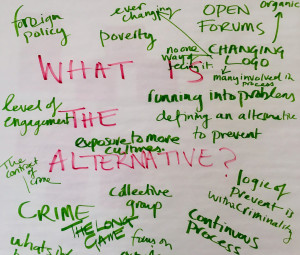 foreign
policy
ever
changing
poverty
OPEN
FORUMS
organic
no one
way of
telling it
CHANGING
LOGO
many involved in
process
WHAT IS
THE
ALTERNATIVE?
level of
engagement
running into problems
defining an alternative
to prevent
exposure to more
cultures
The
context of
crime
CRIME
collective
group
THE LONG
GAME
focus on
logic of
prevent is
criminality
continuous
process